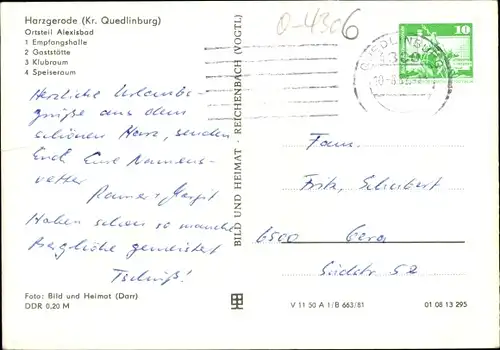 Harzgerode (Kr. Quedlinburg)
Ortsteil Alexisbad
1 Empfangshalle
2 Gaststätte
3 Klubraum
4 Speiseraum
0-4306
QUEDLINBURG
10
Herzliche Urlaubs-
grüße aus dem
schönen Harz, senden
Euch Eure Namens-
vetter
Rainer + Margit
Haben schon so manche
Berghöhe gemeistert
Tschüß!
BILD UND HEIMAT · REICHENBACH (VOGTL)
Fam.
Fritz, Schubert
6500 Gera
Südstr. 52
Foto: Bild und Heimat (Darr)
DDR 0,20 M
V 11 50 A 1/B 663/81
01 08 13 295